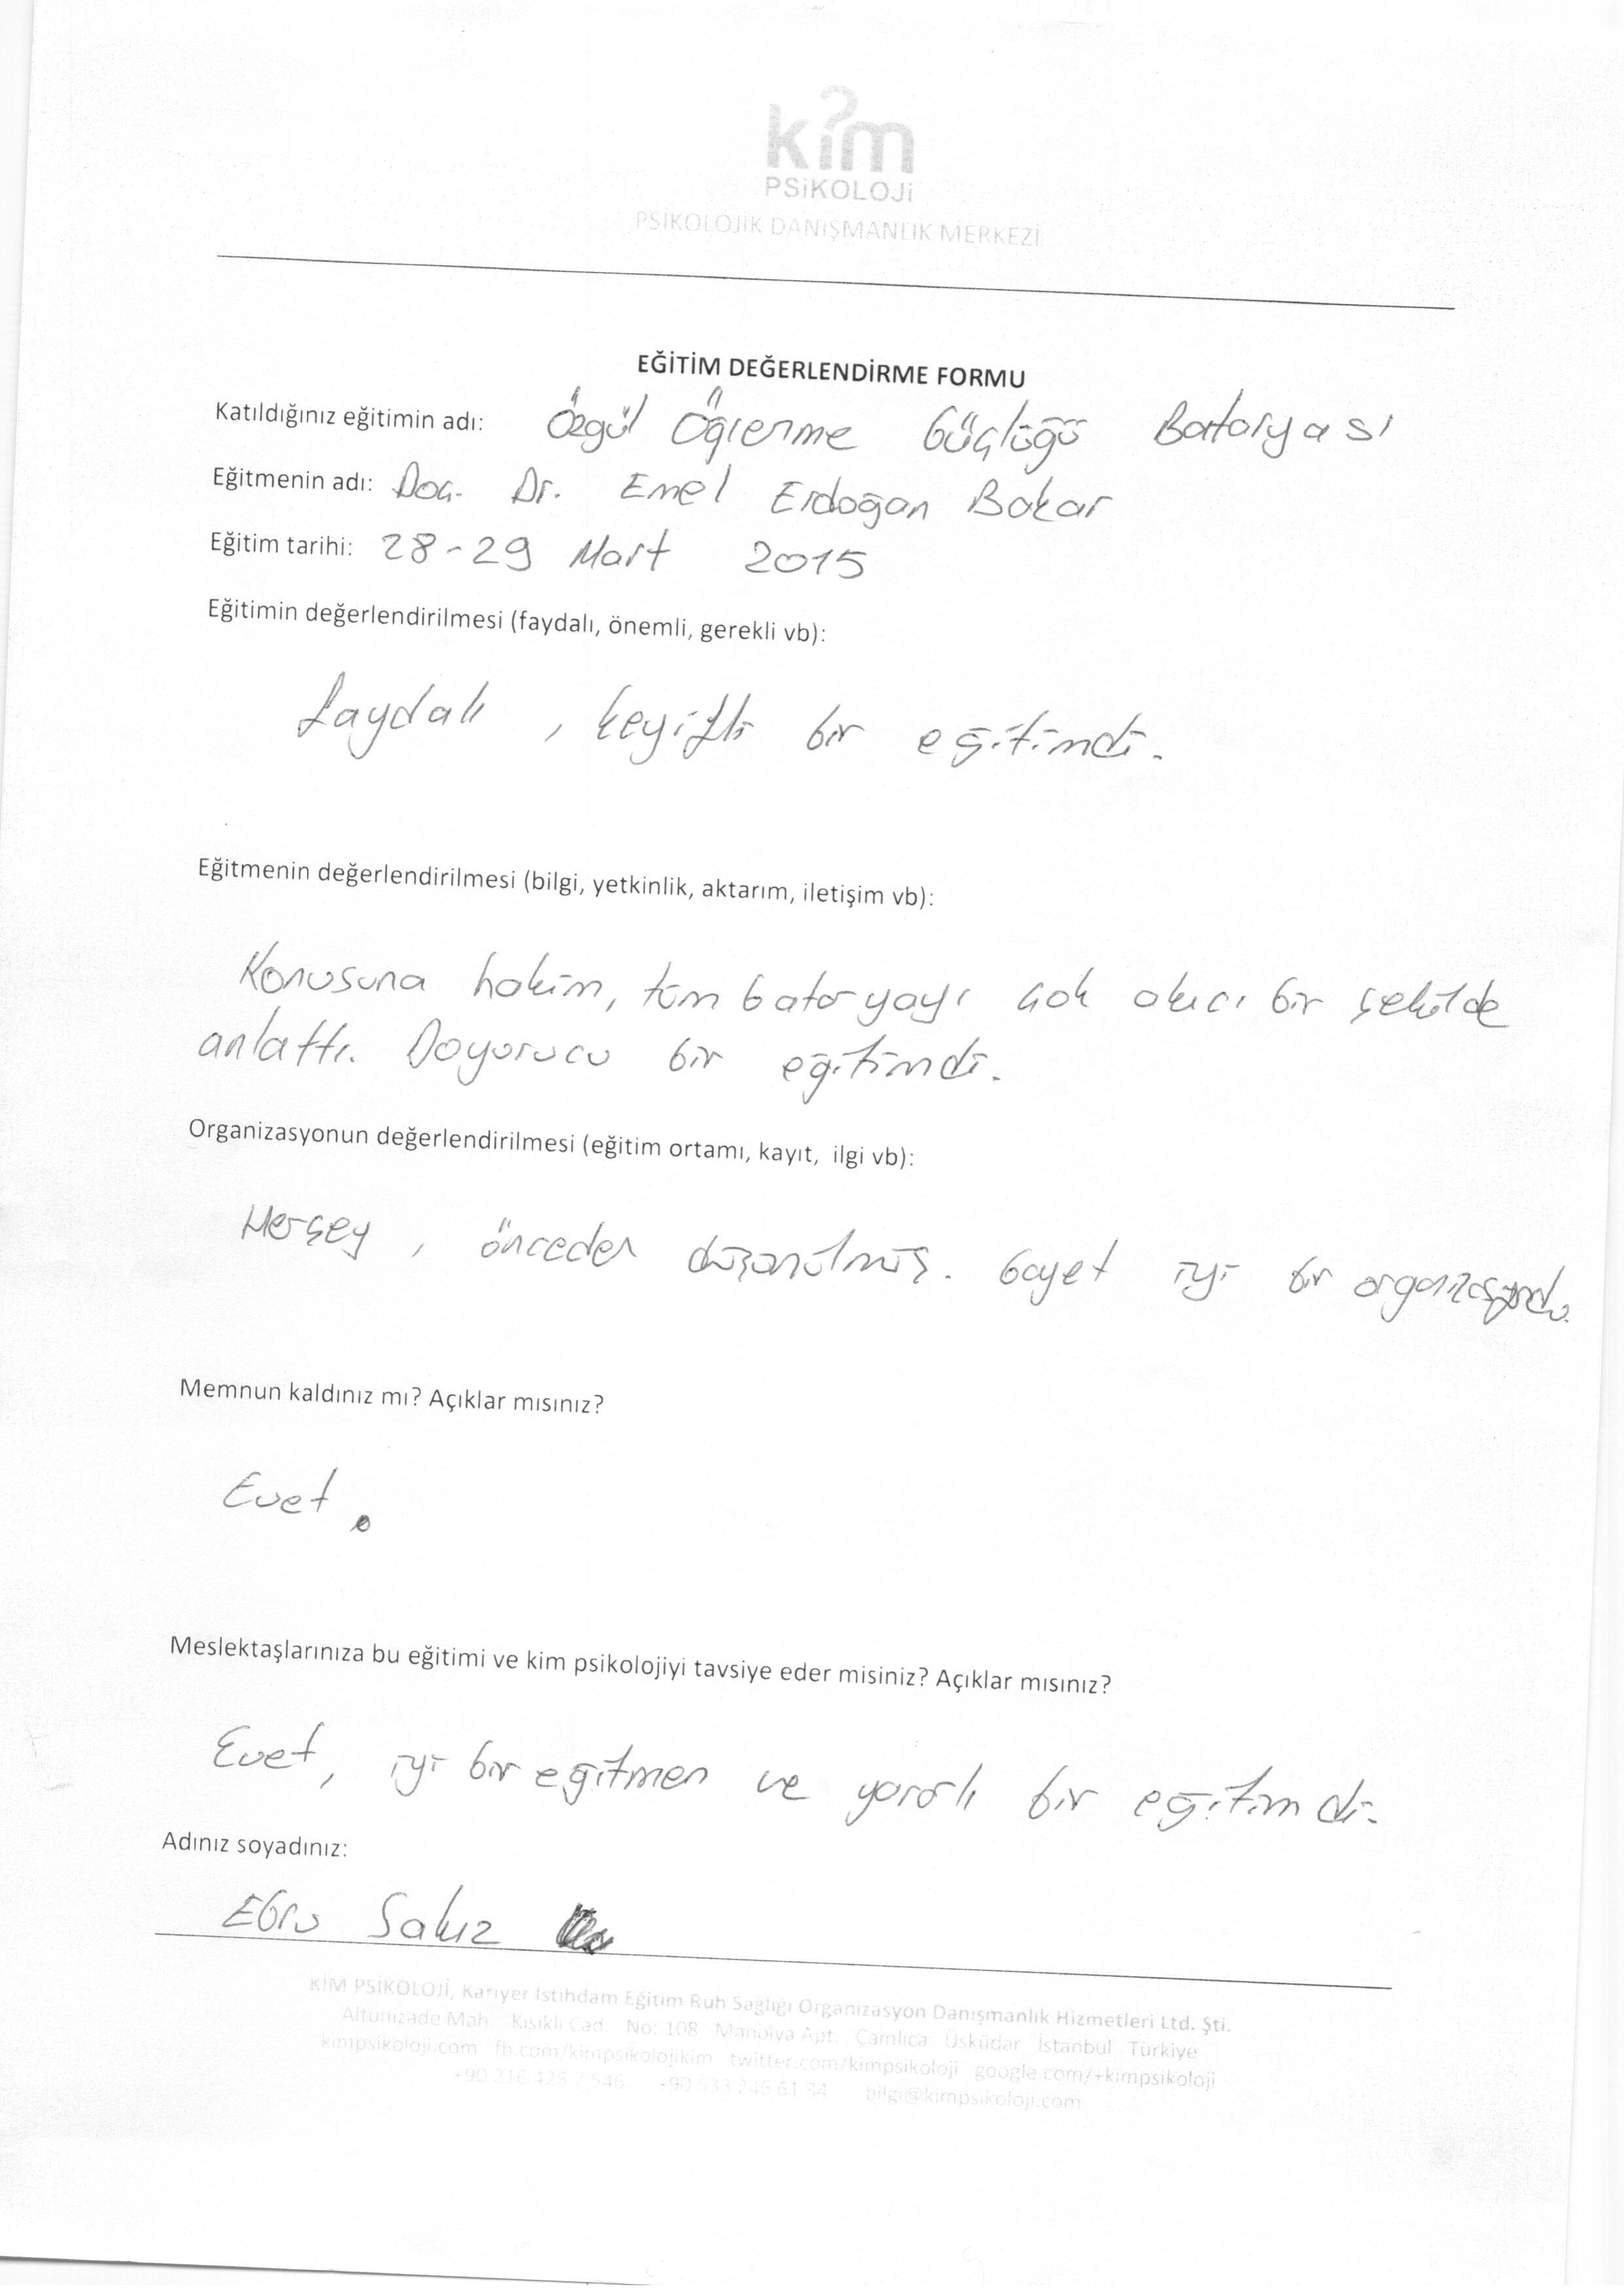 kim
PSiKOLOJi
PSİKOLOJİK DANIŞMANLIK MERKEZİ
EĞİTİM DEĞERLENDİRME FORMU
Katıldığınız eğitimin adı: Özgül Öğrenme Güçlüğü Bataryası
Eğitmenin adı: Doç. Dr. Emel Erdoğan Bakar
Eğitim tarihi: 28-29 Mart 2015
Eğitimin değerlendirilmesi (faydalı, önemli, gerekli vb):
faydalı, keyifli bir eğitimdi.
Eğitmenin değerlendirilmesi (bilgi, yetkinlik, aktarım, iletişim vb):
Konusuna hakim, tüm bataryayı çok akıcı bir şekilde
anlattı. Doyurucu bir eğitimdi.
Organizasyonun değerlendirilmesi (eğitim ortamı, kayıt, ilgi vb):
Herşey, önceden düşünülmüş. Gayet iyi bir organizasyondu.
Memnun kaldınız mı? Açıklar mısınız?
Evet.
Meslektaşlarınıza bu eğitimi ve kim psikolojiyi tavsiye eder misiniz? Açıklar mısınız?
Evet, iyi bir eğitmen ve yararlı bir eğitimdi.
Adınız soyadınız:
Ebru Sakız
KİM PSİKOLOJİ, Kariyer İstihdam Eğitim Ruh Sağlığı Organizasyon Danışmanlık Hizmetleri Ltd. Şti.
Altunizade Mah. Kısıklı Cad No: 108 Manolya Apt. Çamlıca Üsküdar İstanbul Türkiye
kimpsikoloji.com fb.com/kimpsikolojikim twitter.com/kimpsikoloji google.com/+kimpsikoloji
bilgi@kimpsikoloji.com